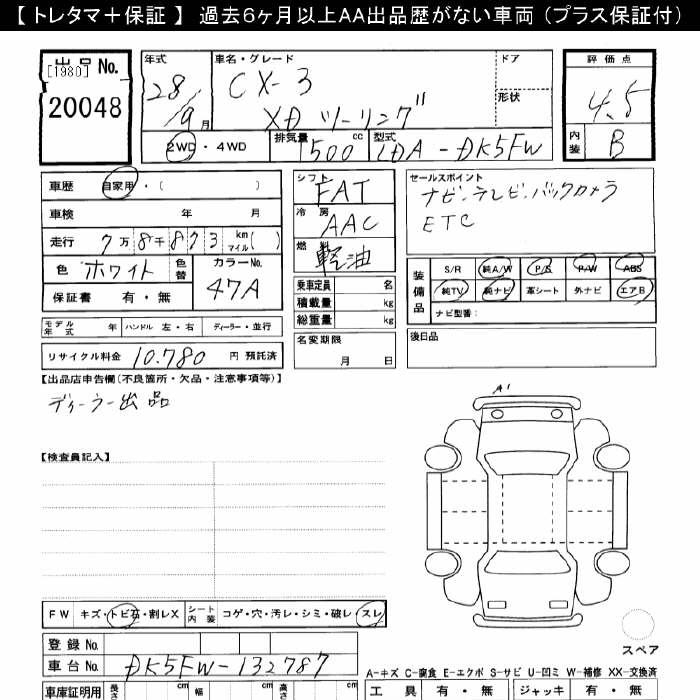 【 トレタマ＋保証 】 過去6ヶ月以上AA出品歴がない車両（プラス保証付）
出品 No.
[1980]
20048
年式 28/9月
車名・グレード CX-3 XD ツーリング
ドア
形状
評価点 4.5
内装 B
2WD・4WD
排気量 1500 cc
型式 LDA-DK5FW
車歴 自家用・（ ）
車検 年 月
走行 7万8千873 km マイル( )
色 ホワイト 色替
カラーNo. 47A
保証書 有・無
モデル年式 年 ハンドル 左・右 ディーラー・並行
リサイクル料金 10.780 円 預託済
シフト FAT
冷房 AAC
燃料 軽油
乗車定員 名
積載量 kg
総重量 kg
名変期限 月 日
セールスポイント
ナビ.テレビ.バックカメラ
ETC
装備品
S/R 純A/W P/S P/W ABS
純TV 純ナビ 革シート 外ナビ エアB
ナビ型番:
後日品
【出品店申告欄(不良箇所・欠品・注意事項等)】
ディーラー出品
A1
【検査員記入】
FW キズ・トビ石・割レX
シート内装 コゲ・穴・汚レ・シミ・破レ・スレ
スペア
登録 No.
車台 No. DK5FW-132787
車庫証明用 長さ cm 幅 cm 高さ cm
A-キズ C-腐食 E-エクボ S-サビ U-凹ミ W-補修 XX-交換済
工具 有・無 ジャッキ 有・無